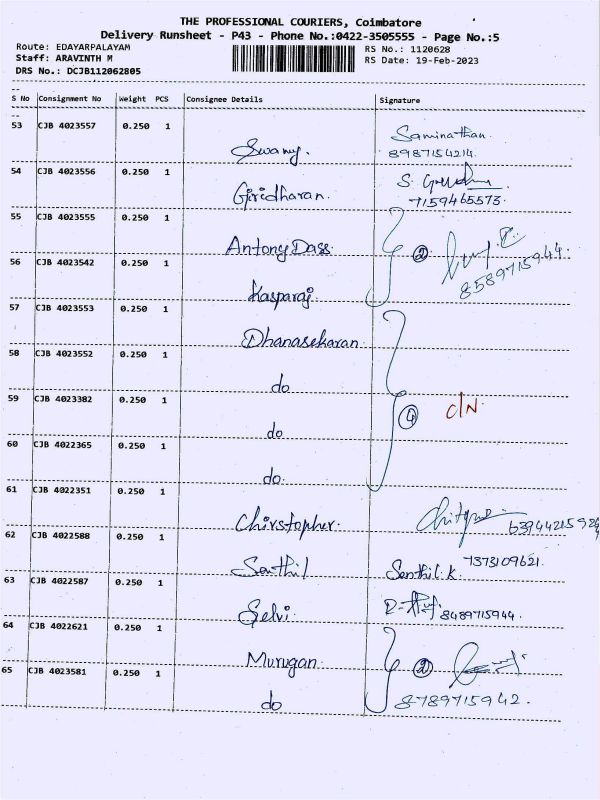 THE PROFESSIONAL COURIERS, Coimbatore
Delivery Runsheet - P43 - Phone No.:0422-3505555 - Page No.:5
Route: EDAYARPALAYAM
RS No.: 1120628
Staff: ARAVINTH M
RS Date: 19-Feb-2023
DRS No.: DCJB112062805
S No Consignment No Weight PCS Consignee Details Signature
53 CJB 4023557 0.250 1 Swamy. Saminathan.
8987154214.
54 CJB 4023556 0.250 1 Giridharan. S.
7159465573.
55 CJB 4023555 0.250 1 Antony Dass. ②
8589715944.
56 CJB 4023542 0.250 1 Kasparaj
57 CJB 4023553 0.250 1 Dhanasekaran.
58 CJB 4023552 0.250 1 do
59 CJB 4023382 0.250 1 do ④ C/N
60 CJB 4022365 0.250 1 do.
61 CJB 4022351 0.250 1 Chirstopher.
62 CJB 4022588 0.250 1 Senthil Senthil.K 7373109621.
63 CJB 4022587 0.250 1 Selvi. 8489715944.
64 CJB 4022621 0.250 1 Murugan. ②
65 CJB 4023581 0.250 1 do 8789715942.